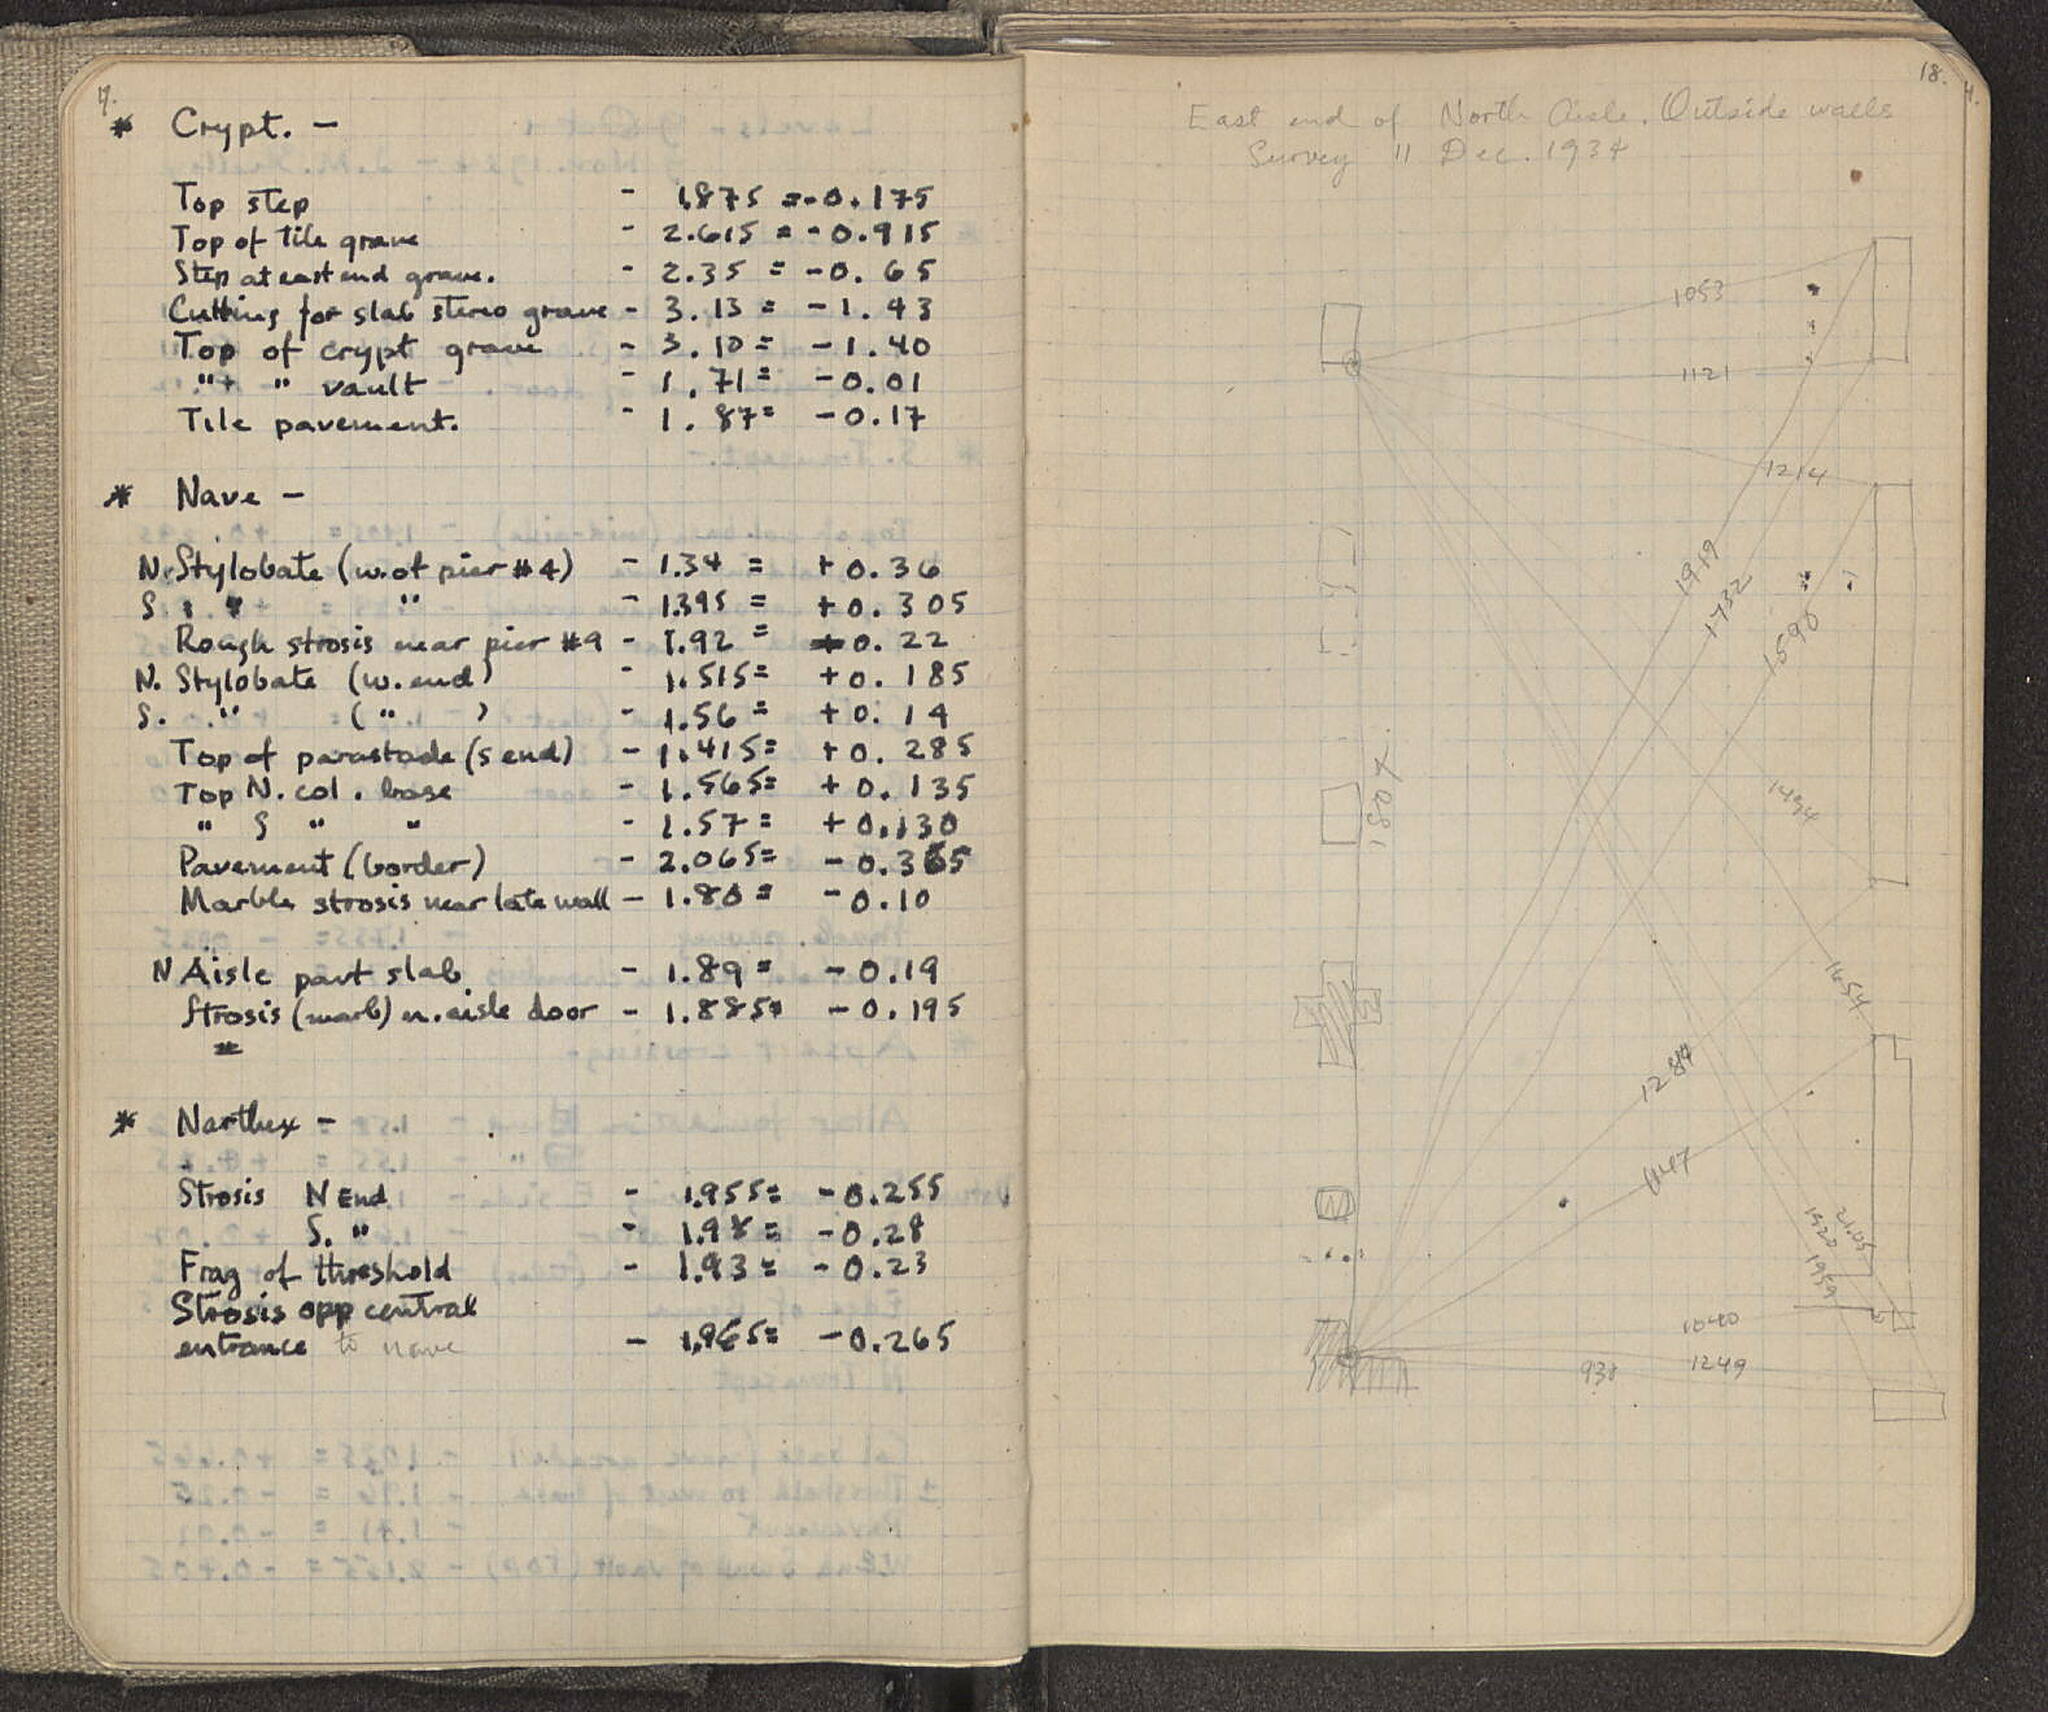 * Crypt. —
Top step - 1.875 = -0.175
Top of tile grave - 2.615 = -0.915
Step at east end grave. - 2.35 = -0.65
Cutting for slab stereo grave - 3.13 = -1.43
Top of crypt grave - 3.10 = -1.40
" " vault - 1.71 = -0.01
Tile pavement. - 1.87 = -0.17
* Nave —
N. Stylobate (w. of pier #4) - 1.34 = +0.36
S " " - 1.395 = +0.305
Rough strosis near pier #9 - 1.92 = 0.22
N. Stylobate (w. end) - 1.515 = +0.185
S. " ( " ) - 1.56 = +0.14
Top of parastade (s end) - 1.415 = +0.285
Top N. col. base - 1.565 = +0.135
" S " " - 1.57 = +0.130
Pavement (border) - 2.065 = -0.365
Marble strosis near late wall - 1.80 = -0.10
N Aisle pavt slab - 1.89 = -0.19
Strosis (marb) n. aisle door - 1.885 = -0.195
* Narthex —
Strosis N End - 1.955 = -0.255
S. " - 1.98 = -0.28
Frag of threshold - 1.93 = -0.23
Strosis opp central
entrance to nave - 1.965 = -0.265
18.
East end of North Aisle. Outside walls
Survey 11 Dec. 1934
1053
1121
1214
1919
1732
1590
1807
1494
1654
1284
1147
2105
1920
1959
1040
938
1249